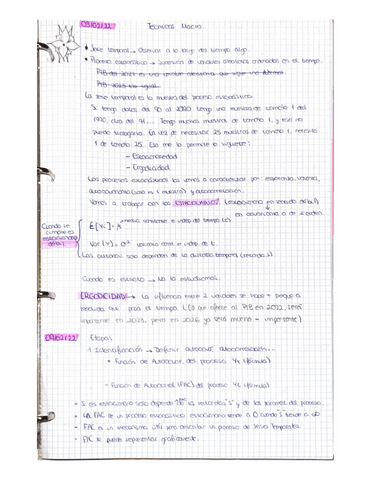 03/02/22
Técnicas Macro.
• Serie temporal → Observar a lo largo del tiempo algo.
• Proceso estocástico → Sucesión de variables aleatorias ordenadas en el tiempo.
PIB del 2021 es una variable aleatoria que sigue una
PIB 2022 es igual.
La serie temporal es la muestra del proceso estocástico.
Si tengo datos del 90 al 2020 tengo una muestra de tamaño 1 del
1990, otra del 91... Tengo muchas muestras de tamaño 1, y eso no
puedo trabajarlo. En vez de necesitar 25 muestras de tamaño 1, necesito
1 de tamaño 25. Eso me lo permite lo siguiente:
- Estacionariedad
- Ergodicidad
Los procesos estocásticos los vamos a caracterizar por: esperanza, varianza,
autocovarianza (solo es 1 muestra) y autocorrelación.
Vamos a trabajar con los ESTACIONARIOS (estacionario en sentido débil)
en covarianza o de 2 orden.
Cuando se
cumple es
estacionario
débil
E[Yt] = μ media constante e indep. del tiempo (t)
Var(Yt) = σ² varianza const. e indep. de t.
Las autocov. solo dependen de la distancia temporal (retardo s)
Cuando es estricto → No lo estudiamos.
ERGODICIDAD → La influencia entre 2 variables se hace + pequeña a
medida que pasa el tiempo. (Lo que afecte al PIB en 2022, será
importante en 2023, pero en 2026 ya será mucho - importante)
09/02/22
Etapas
1. Identificación → Definir autocov, autocorrelación...
• Función de Autocovar. del proceso Yt (fórmula)
• Función de Autocorrel (FAC) del proceso Yt (fórmula)
• Si es estacionario solo depende de los retardos "s" y de los parám. del proceso.
• LA FAC de un proceso estocástico estacionario tiende a 0 cuando "s" tiende a ∞
• FAC es un mecanismo útil para describir un proceso de Series Temporales.
• FAC se puede representar gráficamente.